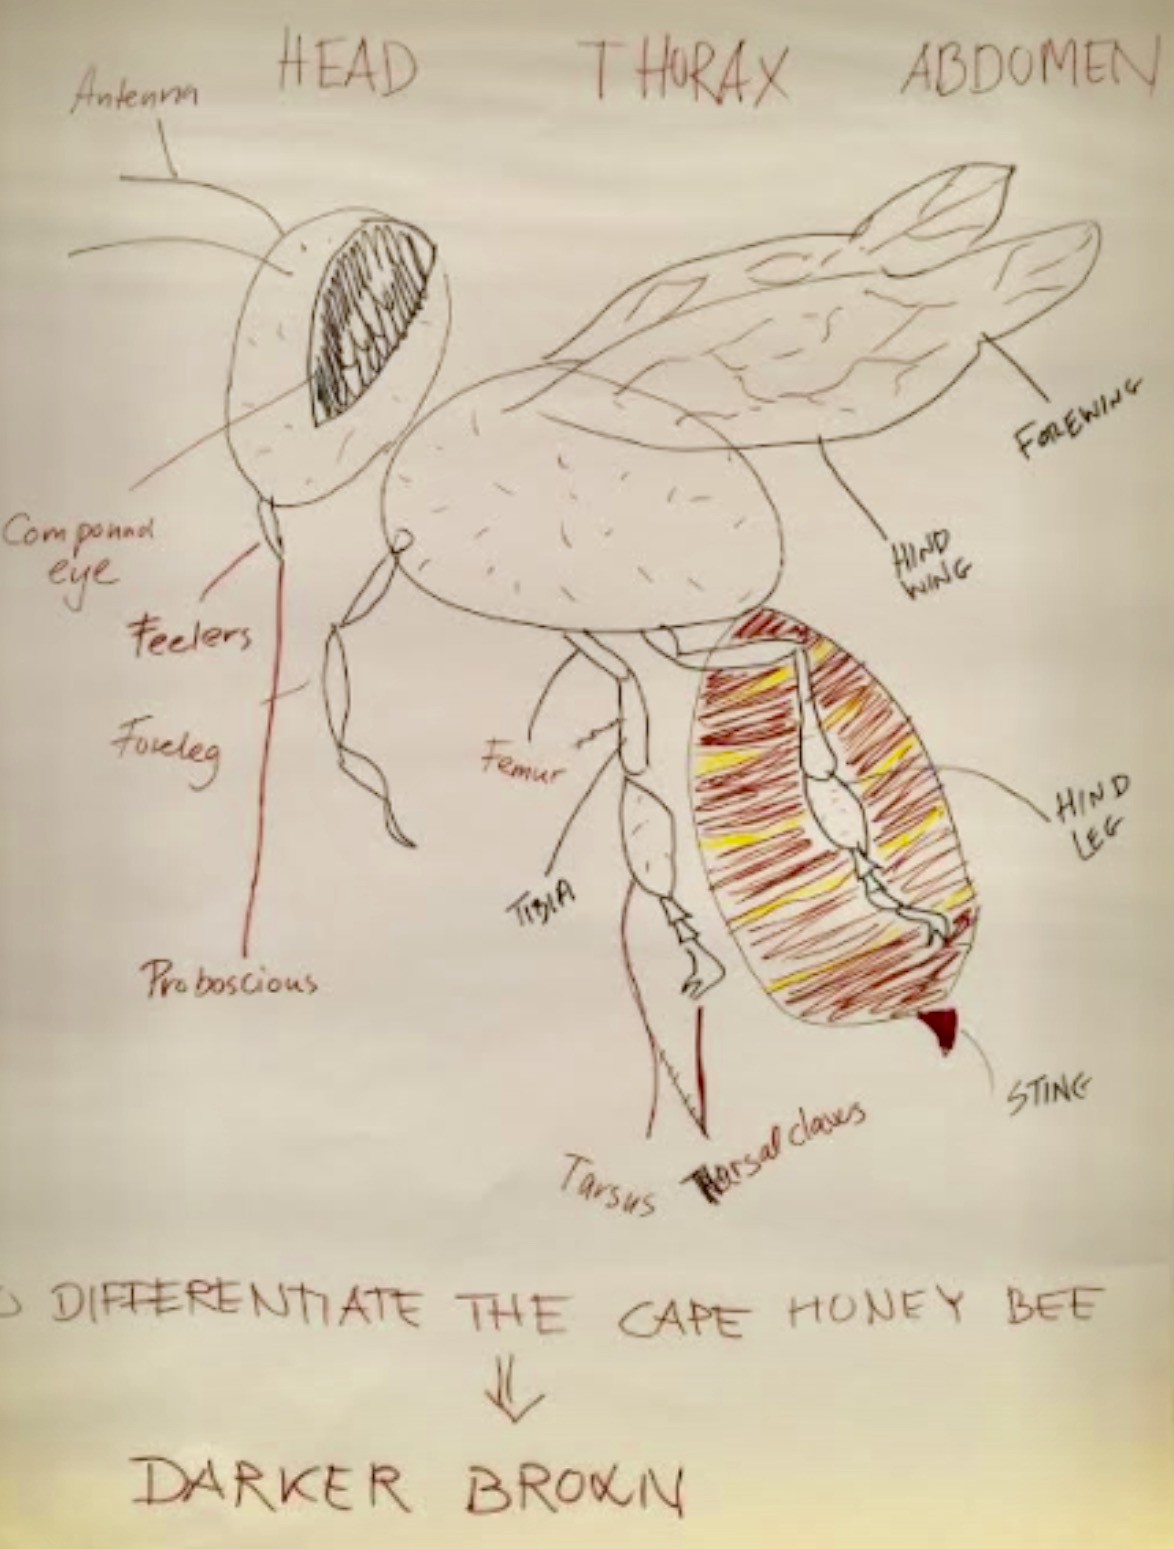 HEAD THORAX ABDOMEN
Antenna
FOREWING
Compound
eye
HIND
WING
Feelers
Foreleg
Femur
HIND
LEG
TIBIA
Proboscious
STING
Tarsus Tarsal claws
DIFFERENTIATE THE CAPE HONEY BEE
⇓
DARKER BROWN